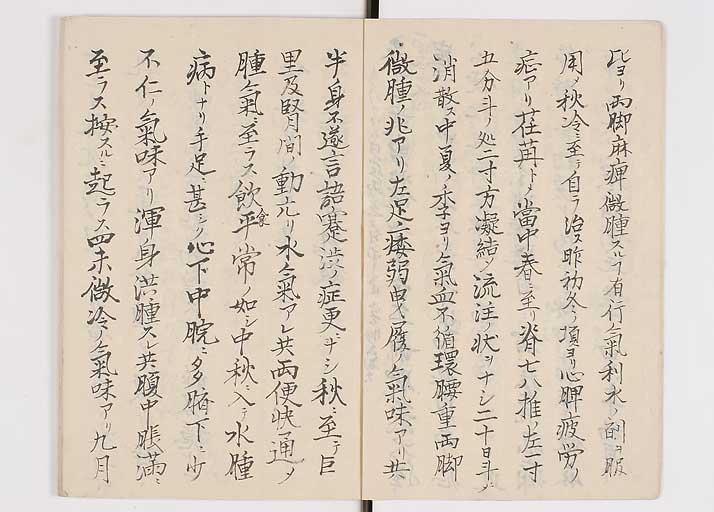 比ヨリ両脚麻痺微腫スルヿ有行氣利水ノ剤ヲ服
用メ秋冷ニ至テ自ラ治ス昨初冬ノ項ヨリ心脾疲労ノ
症アリ荏苒トメ當中春ニ至リ脊七八推ノ左一寸
五分斗ノ処二寸方凝結ノ流注ノ状ヲナシ二十日斗ニメ
消散ス中夏ノ季ヨリ氣血不循環腰重両脚
微腫ノ兆アリ左足ノ痿弱曳履ノ氣味アリ共
半身不遂言語蹇渋ノ症更ニナシ秋ニ至テ巨
里及腎間ノ動亢リ水氣アレ共両便快通メ
腫氣ニ至ラス飲食平常ノ如シ中秋ニ入テ水腫
病トナリ手足ニ甚シク心下中脘ニ多ク臍下ニ少
不仁ノ氣味アリ渾身洪腫スレ共腹中脹満ニ
至ラス按スルニ起ラス四末微冷ノ氣味アリ九月